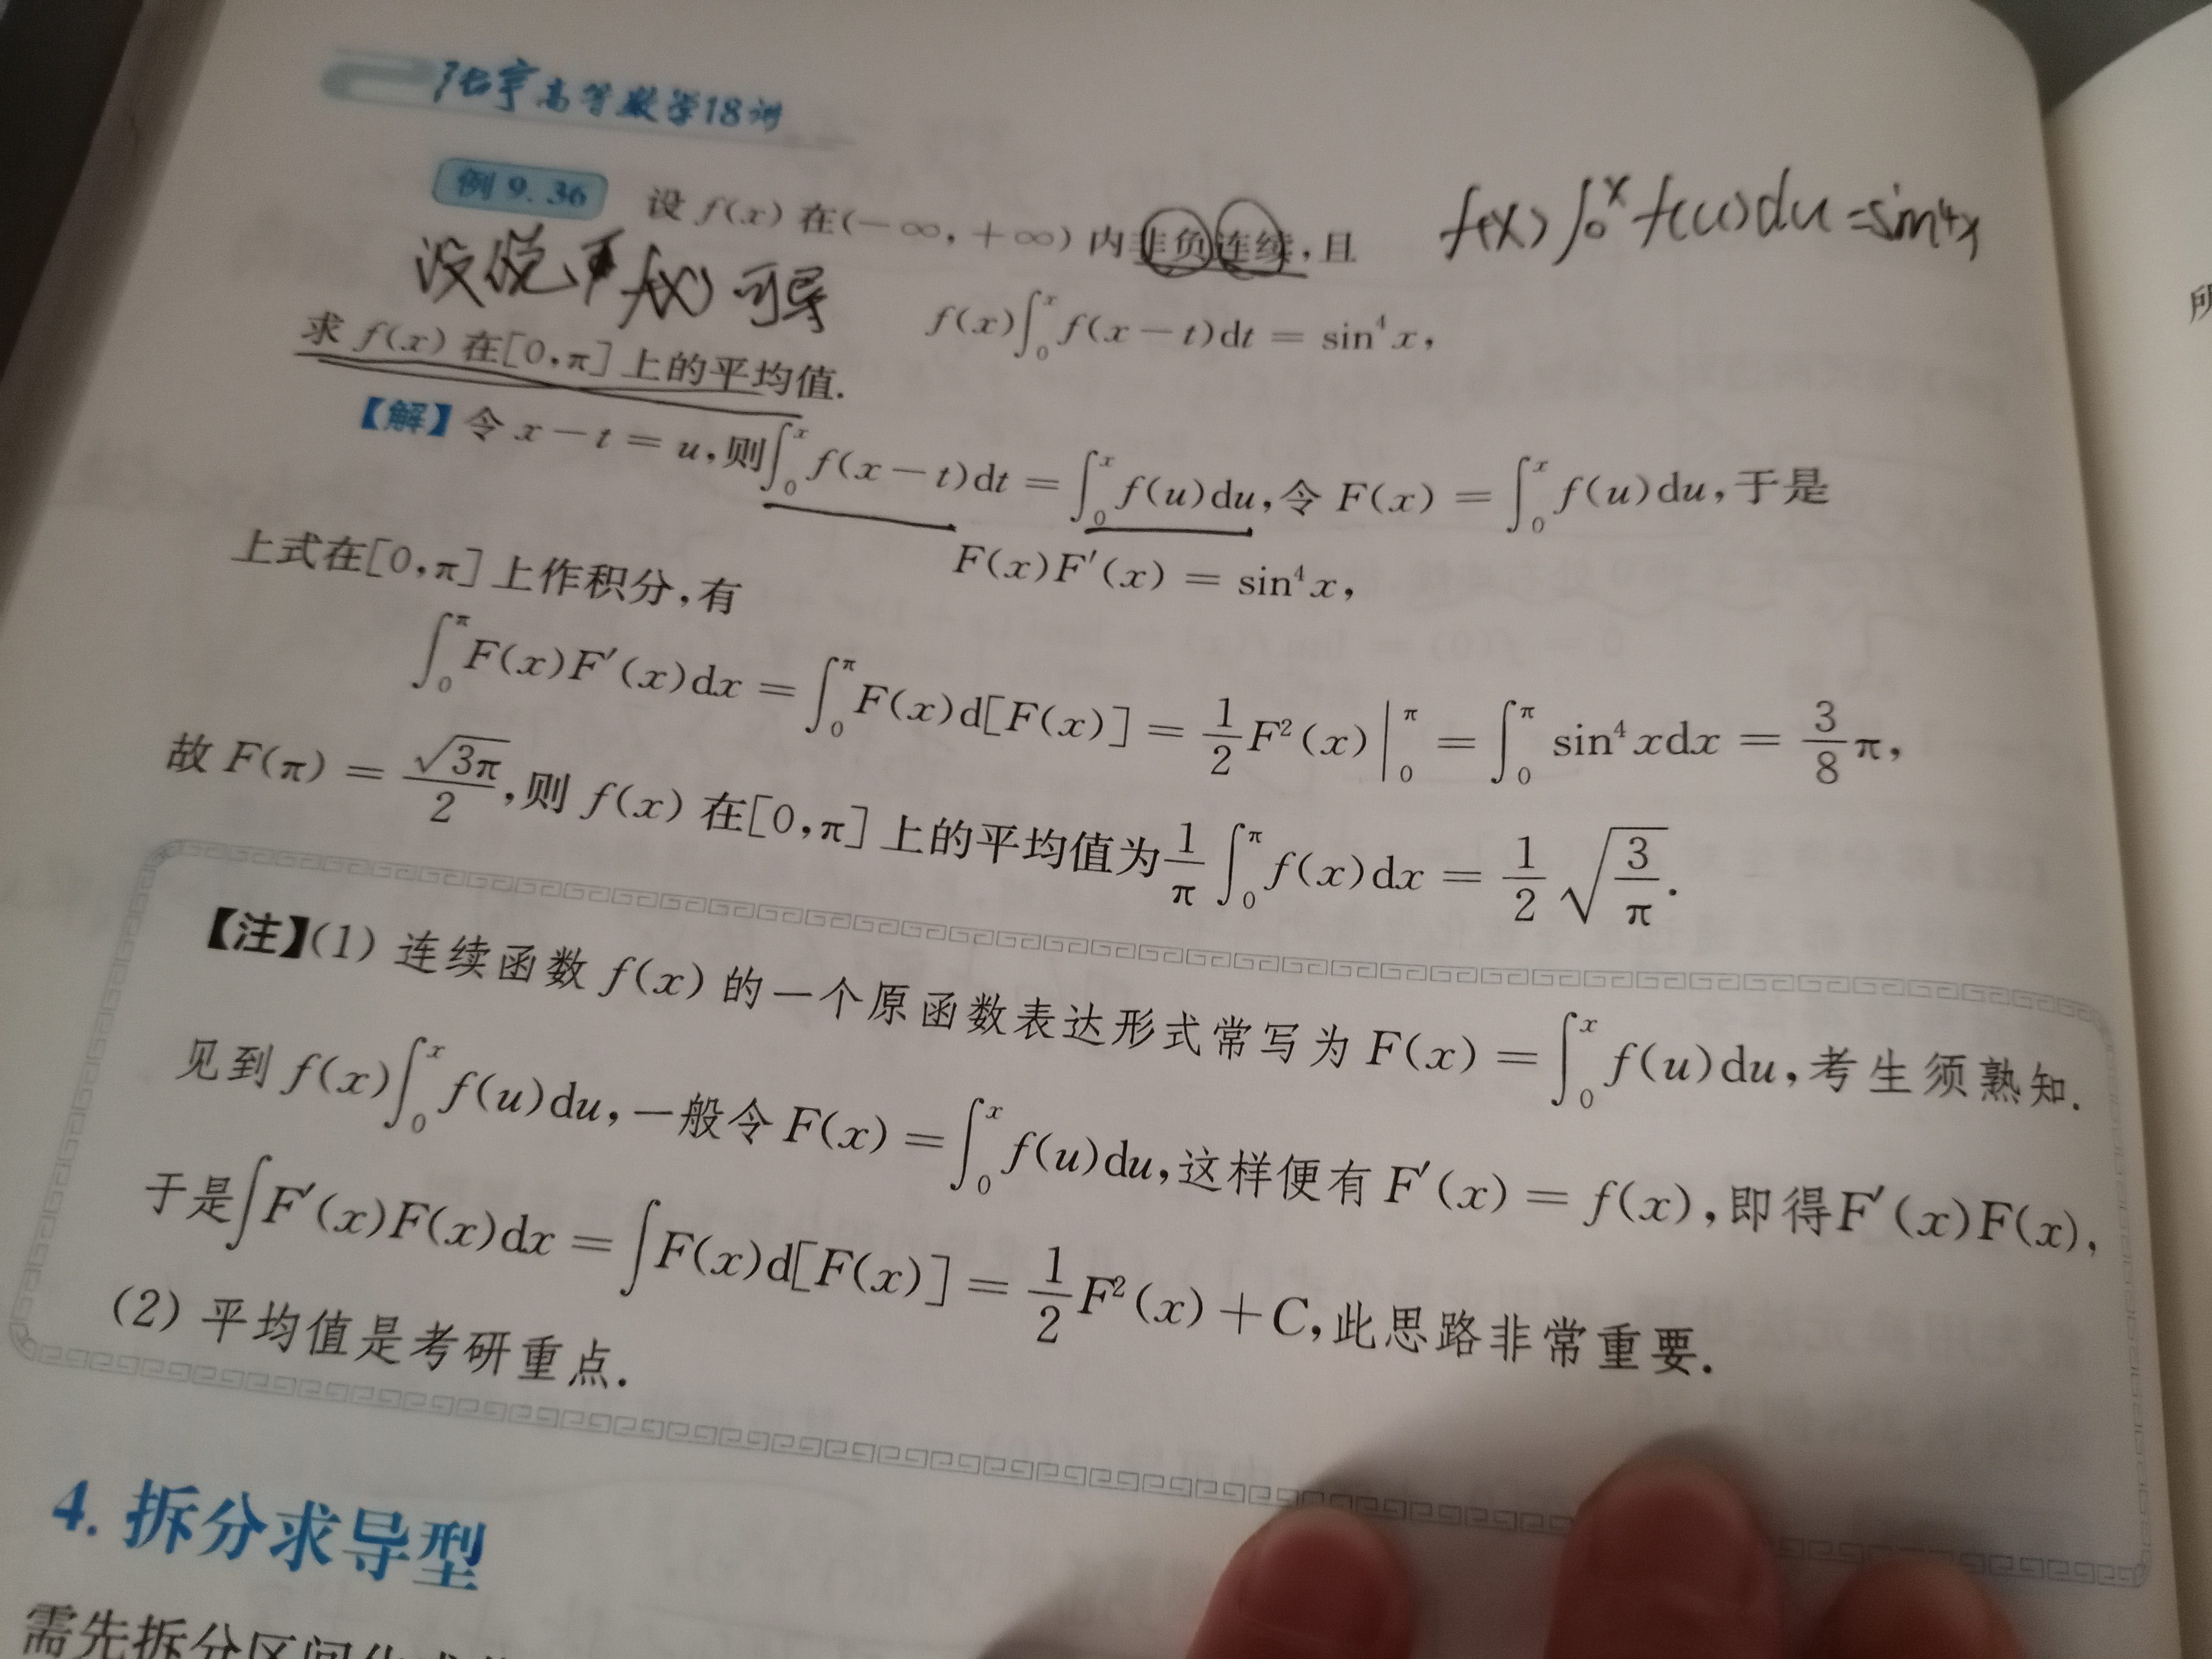 张宇高等数学18讲
例9.36 设 f(x) 在(−∞,+∞) 内非负连续,且
f(x)∫₀ˣ f(u)du=sin⁴x
没说 f(x) 可导
f(x)∫₀ˣ f(x−t)dt = sin⁴x,
求 f(x) 在[0,π] 上的平均值.
【解】令 x−t = u,则∫₀ˣ f(x−t)dt = ∫₀ˣ f(u)du,令 F(x) = ∫₀ˣ f(u)du,于是
F(x)F′(x) = sin⁴x,
上式在[0,π] 上作积分,有
∫₀^π F(x)F′(x)dx = ∫₀^π F(x)d[F(x)] = 1/2 F²(x)|₀^π = ∫₀^π sin⁴xdx = 3/8 π,
故 F(π) = √(3π)/2,则 f(x) 在[0,π] 上的平均值为 1/π ∫₀^π f(x)dx = 1/2 √(3/π).
【注】(1) 连续函数 f(x) 的一个原函数表达形式常写为 F(x) = ∫₀ˣ f(u)du,考生须熟知.
见到 f(x)∫₀ˣ f(u)du,一般令 F(x) = ∫₀ˣ f(u)du,这样便有 F′(x) = f(x),即得F′(x)F(x),
于是∫F′(x)F(x)dx = ∫F(x)d[F(x)] = 1/2 F²(x)+C,此思路非常重要.
(2) 平均值是考研重点.
4. 拆分求导型
需先拆分区间